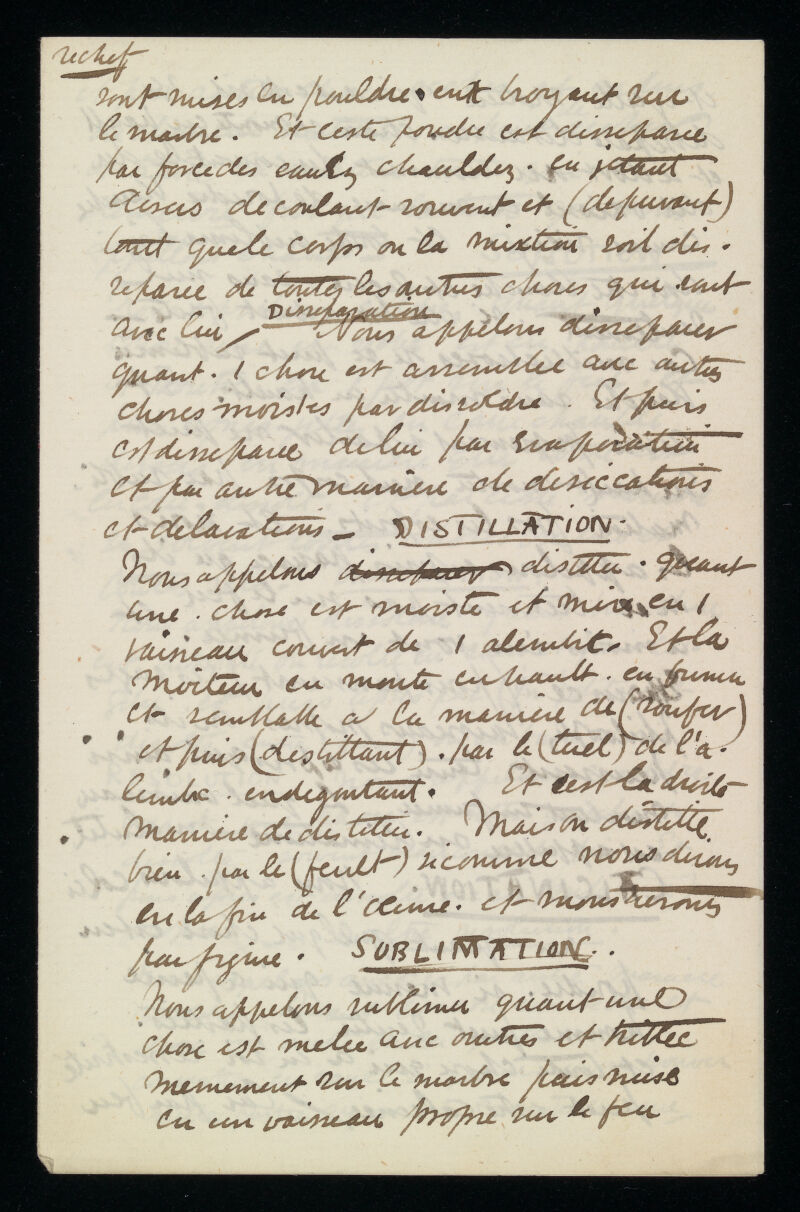 rechef
sont mises en pouldre. ent broyant sur
le marbre. Et ceste poudre est disseparee
par force des eaulz chauldez. en jetant
decoulant souvent et (depuvant)
tant que le corps ou la mixtion soit dis-
separee de toutes les autres choses qui sont
avec lui — Disseparation Nous appelons disseparer
quant. 1 chose est assemblee avec autres
choses moistes par disoldre. Et puis
est disseparee de lui par evaporation
et par autre maniere de desiccations
et de lavations — DISTILLATION.
Nous appelons disseparer distiller. quant
une. chose est moiste et mise en 1
vaisseau couvert de 1 alembic. Et la
moiteur en monte en hault. en fumee
et semblable a la maniere de (soufer)
et puis (destillant). par le (tuel) de l'a-
lembic. en degoutant. Et cest la droite
maniere de distiller. Mais on distille
bien. par le (feult) si comme nous dirons
en la fin de l'œuvre. et monsterons
par figure. SUBLIMATION.
Nous appelons sublimer quant une
chose est melee avec autres et trittee
mesmement sur le marbre puis mise
en un vaisseau propre sur le feu